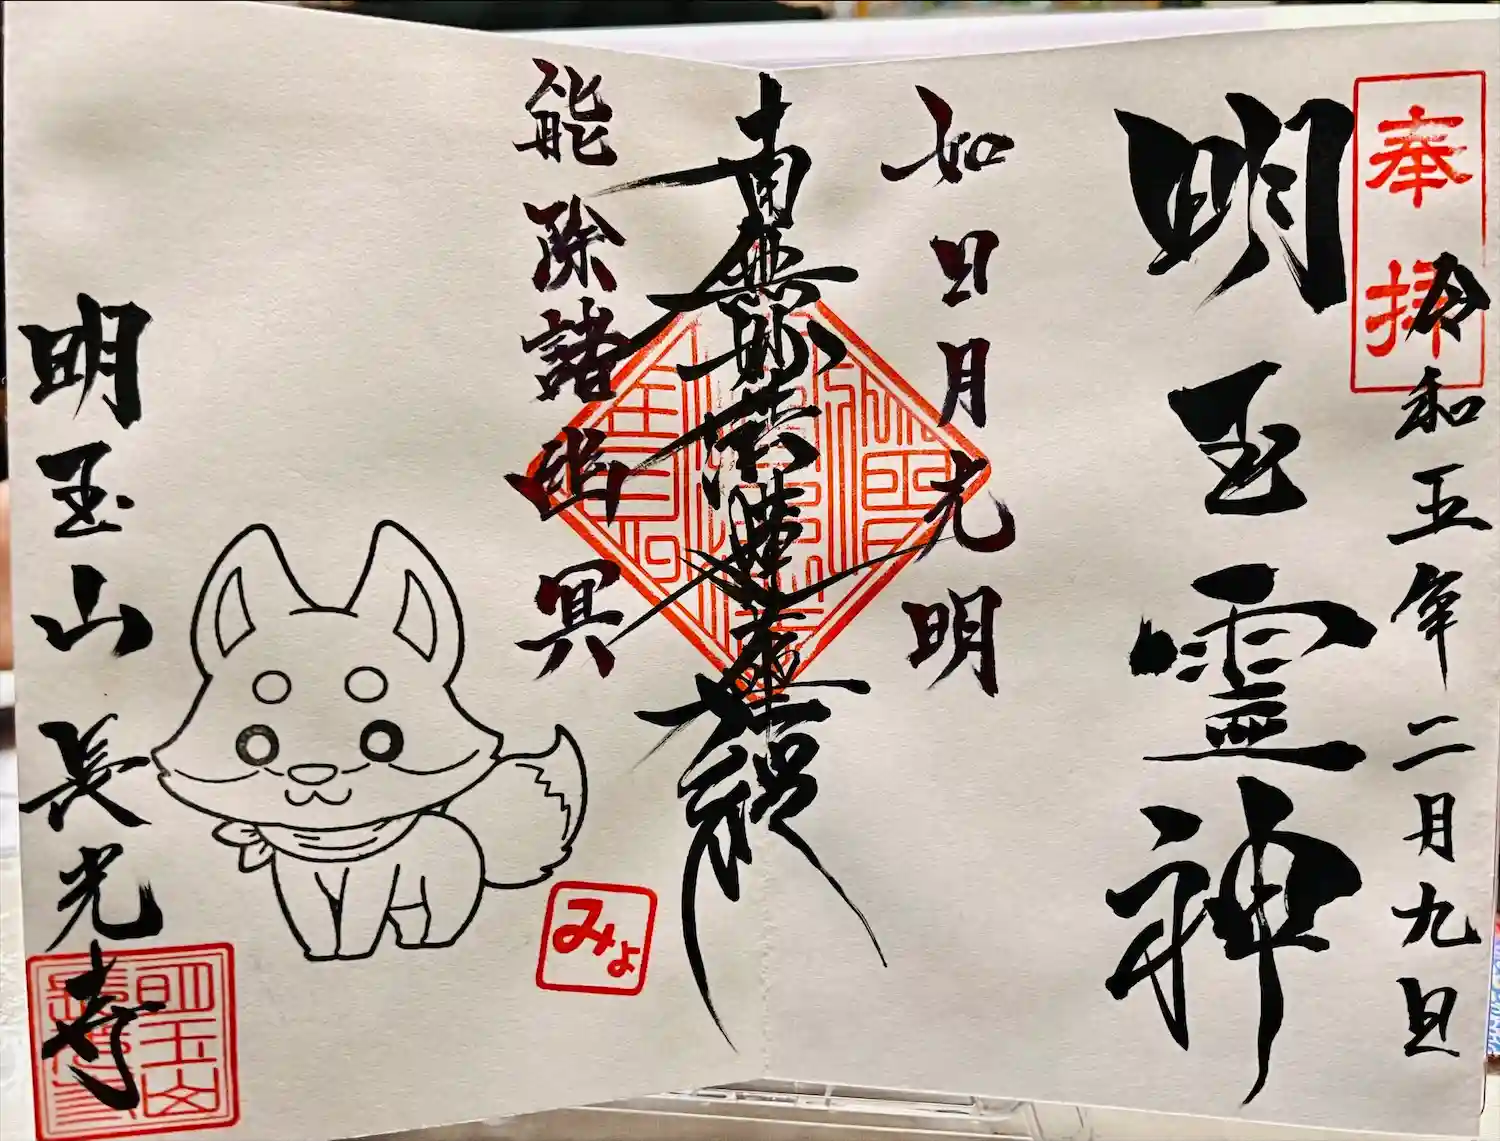 奉拝
令和五年二月九日
明玉霊神
如日月光明
南無妙法蓮華経
能除諸幽冥
みよ
明玉山長光寺
明玉山